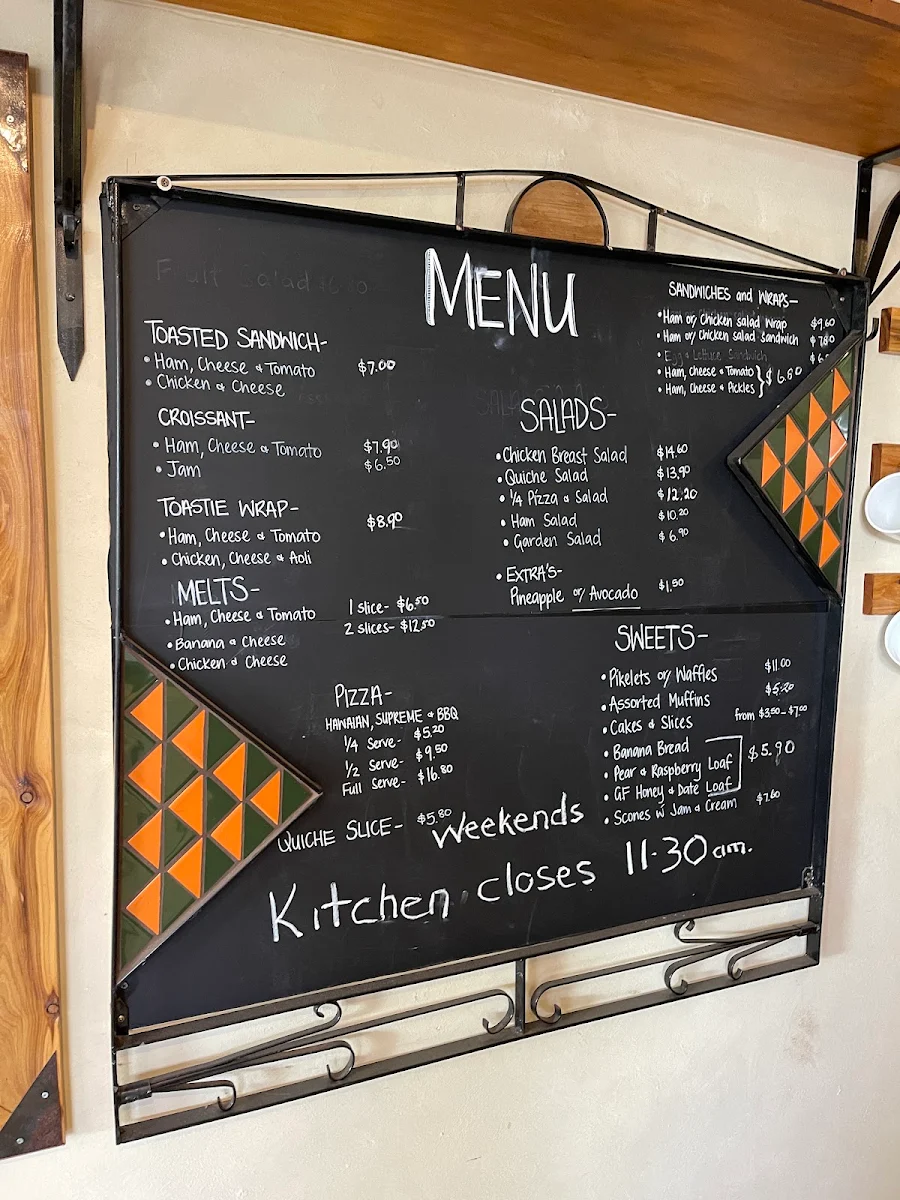 MENU
TOASTED SANDWICH-
• Ham, Cheese & Tomato $7.00
• Chicken & Cheese
CROISSANT-
• Ham, Cheese & Tomato $7.90
• Jam $6.50
TOASTIE WRAP-
• Ham, Cheese & Tomato $8.90
• Chicken, Cheese & Aoli
MELTS-
• Ham, Cheese & Tomato 1 slice- $6.50
• Banana & Cheese 2 slices- $12.50
• Chicken & Cheese
PIZZA-
HAWAIIAN, SUPREME & BBQ
1/4 Serve- $5.20
1/2 Serve- $9.50
Full Serve- $16.80
QUICHE SLICE- $5.80
SANDWICHES and WRAPS-
• Ham or Chicken salad wrap $9.60
• Ham or Chicken salad sandwich
• Egg & Lettuce Sandwich
• Ham, cheese & Tomato } $6.80
• Ham, Cheese & Pickles
SALADS-
• Chicken Breast Salad $14.60
• Quiche Salad $13.90
• 1/4 Pizza & Salad $12.20
• Ham Salad $10.20
• Garden Salad $6.90
• EXTRA'S-
Pineapple or Avocado $1.50
SWEETS-
• Pikelets or Waffles $11.00
• Assorted Muffins $5.20
• Cakes & Slices from $3.50-$7.00
• Banana Bread
• Pear & Raspberry Loaf $5.90
• GF Honey & Date Loaf
• Scones w Jam & Cream $7.60
Weekends
Kitchen closes 11.30 am.